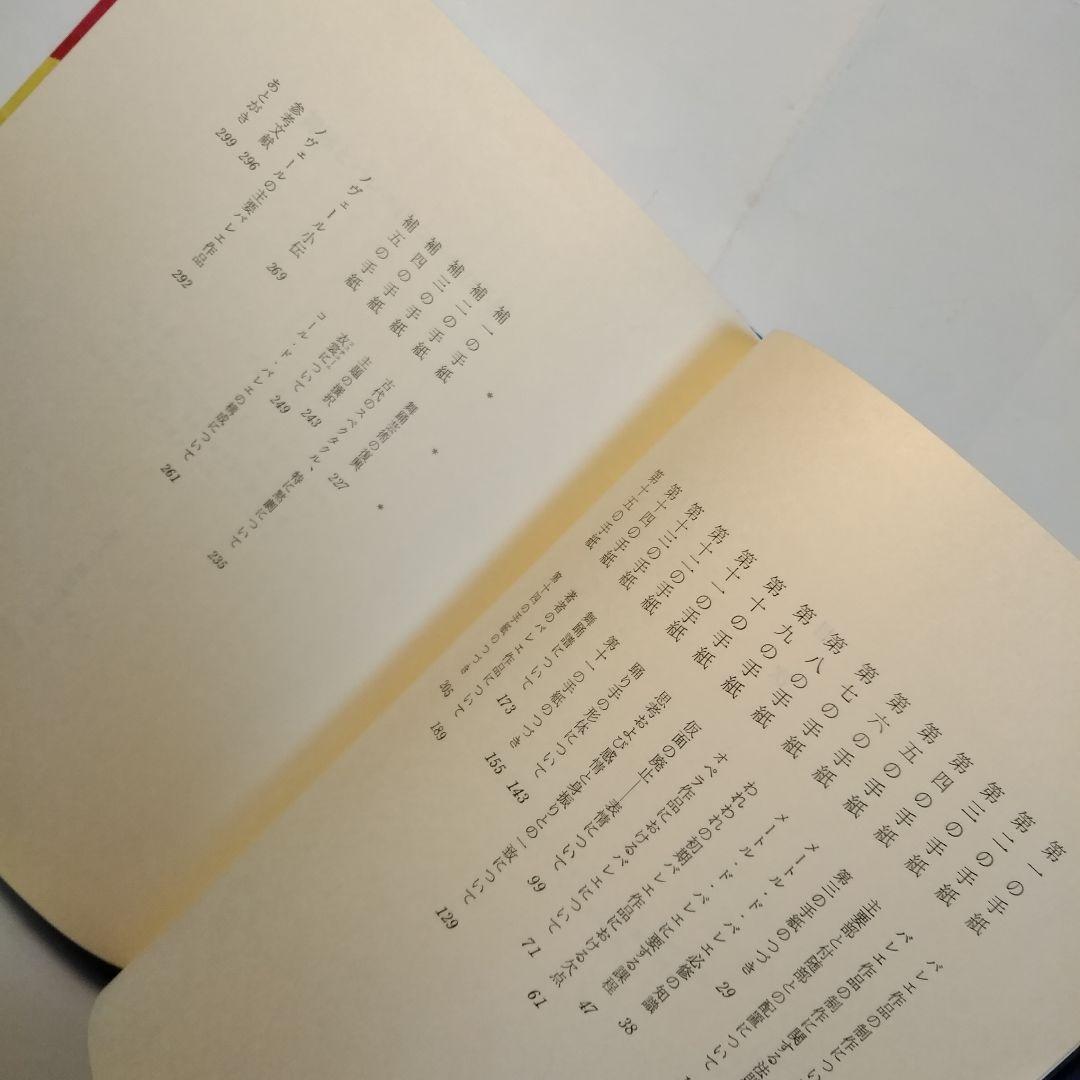 第一の手紙 バレエ作品の制作につい
第二の手紙 バレエ作品の制作に関する法
第三の手紙 主要部と付随部との配置について
第四の手紙 第三の手紙のつづき 29
第五の手紙 メートル・ド・バレエ必修の知識 38
第六の手紙 メートル・ド・バレエに要する課程 47
第七の手紙 われわれの初期バレエ作品における欠点 61
第八の手紙 オペラ作品におけるバレエについて 71
第九の手紙 仮面の廃止—表情について 99
第十の手紙 思考および感情と身振りとの一致について 129
第十一の手紙 踊り手の形体について 143
第十二の手紙 第十一の手紙のつづき 155
第十三の手紙 舞踊譜について 173
第十四の手紙 著者のバレエ作品について 189
第十五の手紙 第十四の手紙のつづき 205
* * *
補一の手紙 舞踊芸術の復興 227
補二の手紙 古代のスペクタクル、特に黙劇について 235
補三の手紙 主題の選択 243
補四の手紙 衣裳について 249
補五の手紙 コール・ド・バレエの構成について 261
ノヴェール小伝 269
ノヴェールの主要バレエ作品 292
参考文献 296
あとがき 299